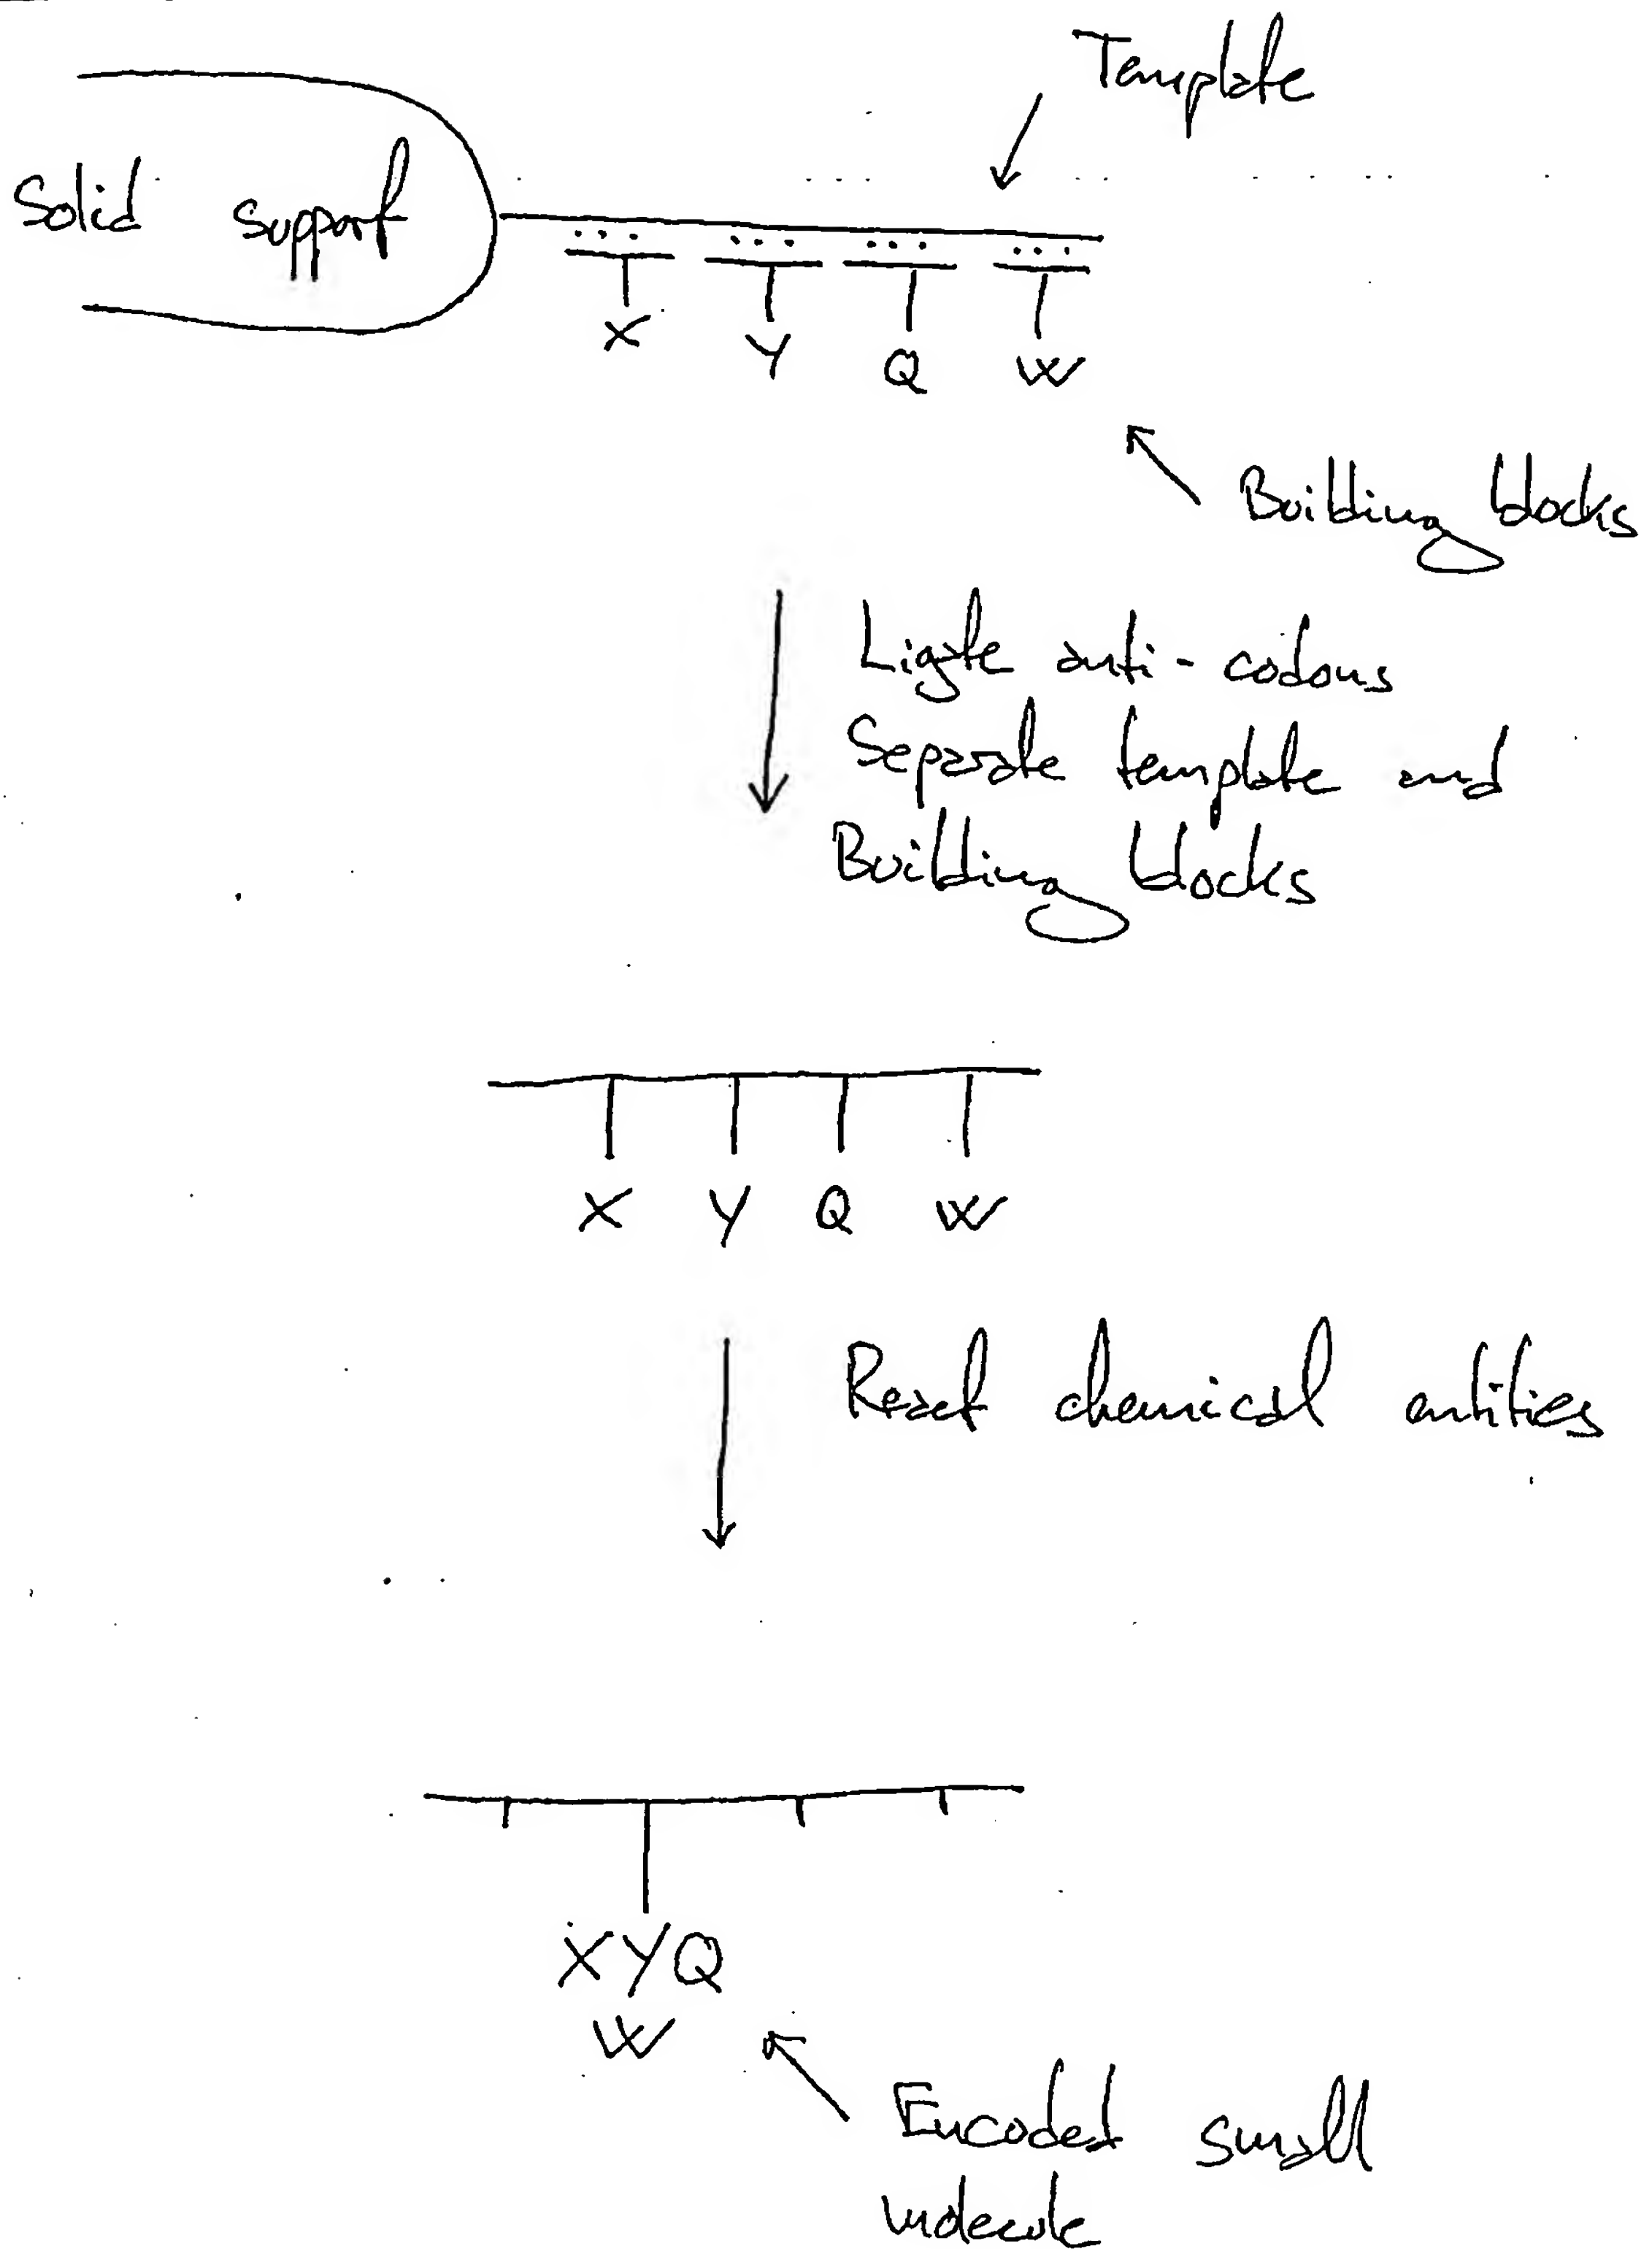 Template
Solid support
X Y Q W
Building blocks
Ligate anti-codons
Separate template and
Building blocks
X Y Q W
React chemical entities
XYQ
W
Encoded small
molecule